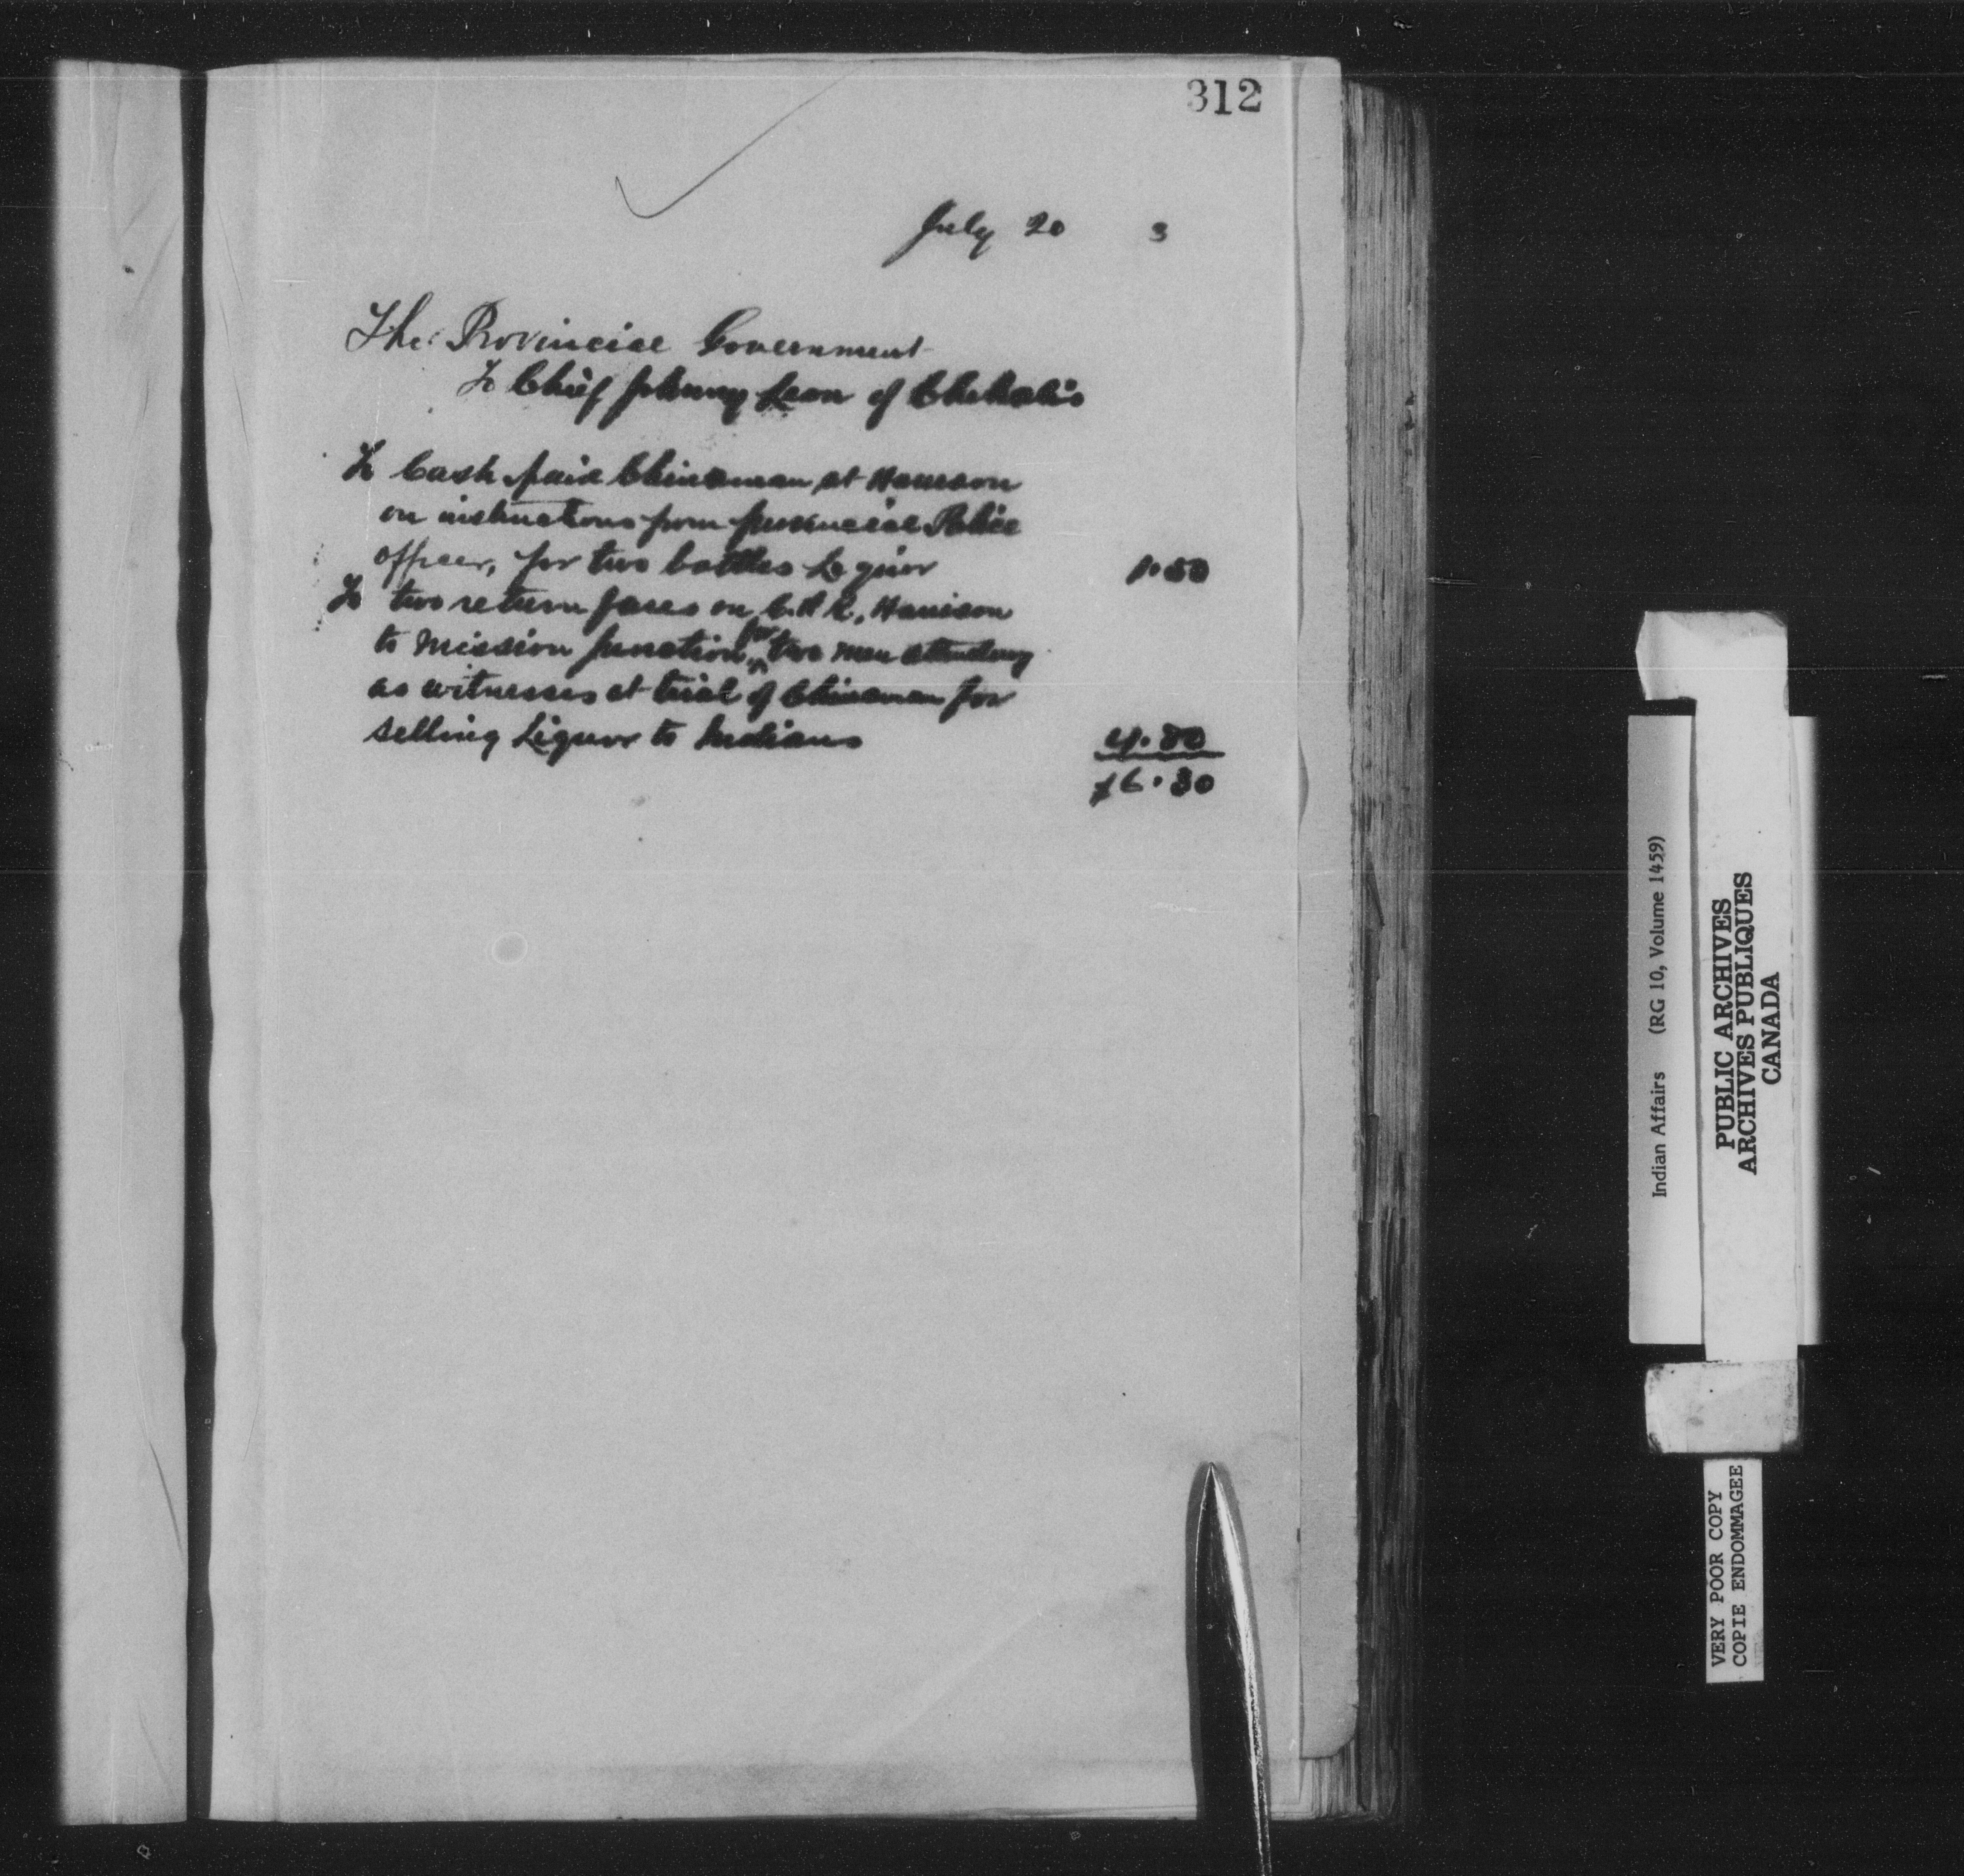 312
July 20 3
The Provincial Government
To Chief Johnny Leon of Chehalis
To Cash paid Chinaman at Harrison
on instructions from provincial Police
officer, for two bottles Liquor 1.50
To two return fares on C.P.R., Harrison
to Mission Junction, for two men attending
as witnesses at trial of Chinaman for
selling Liquor to Indians 4.80
$6.30
Indian Affairs (RG 10, Volume 1459)
PUBLIC ARCHIVES
ARCHIVES PUBLIQUES
CANADA
VERY POOR COPY
COPIE ENDOMMAGEE